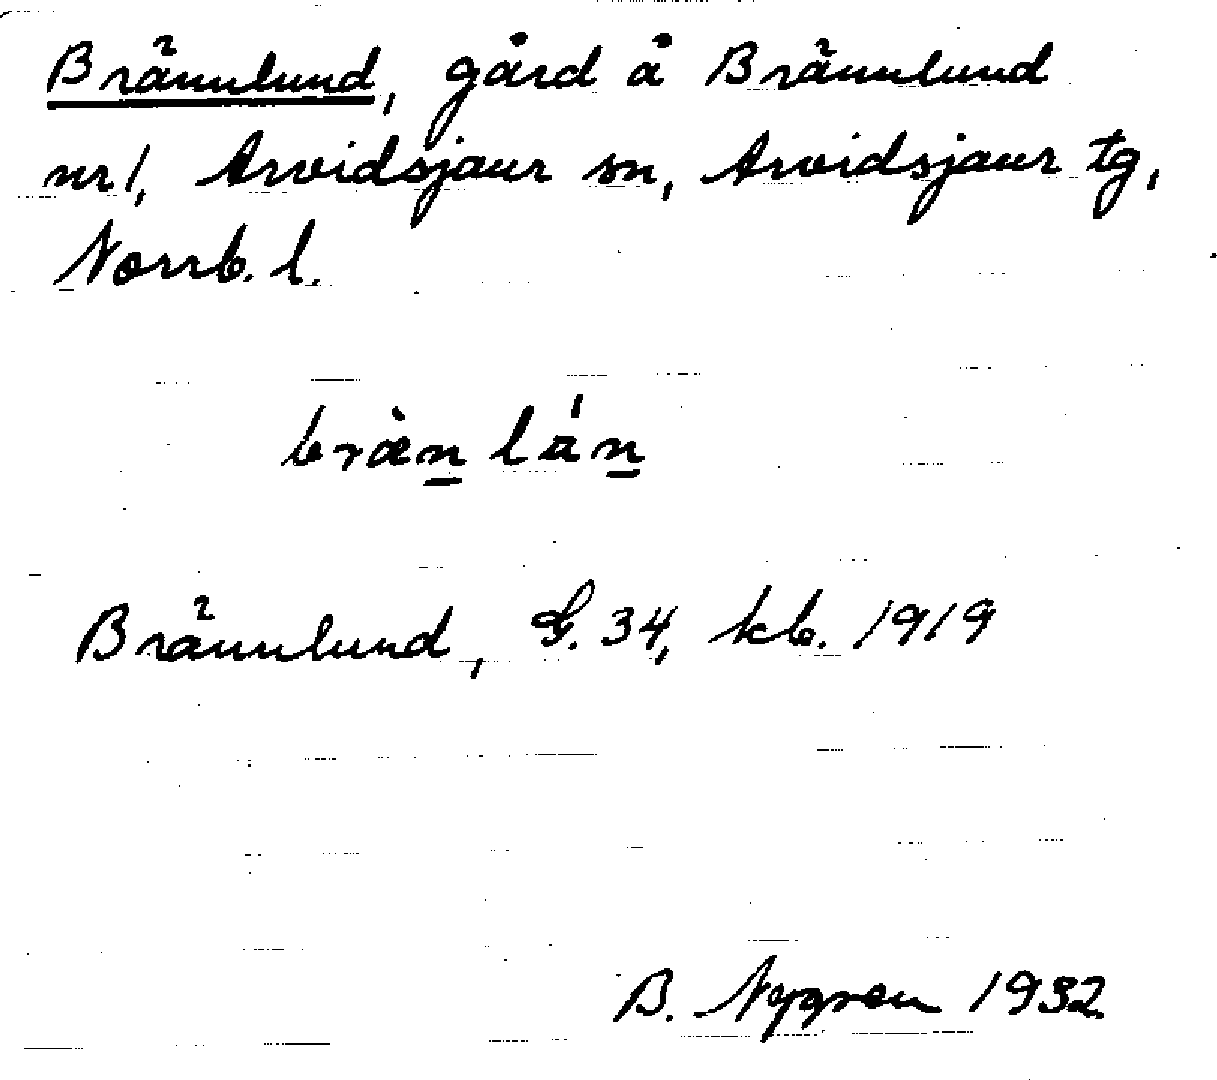 Brännlund, gård å Brännlund
nr 1, Arvidsjaur sn, Arvidsjaur tg,
Norrb. l.
bræ̀n̲ lán̲
Brännlund, G. 34, kb. 1919
B. Nygren 1932